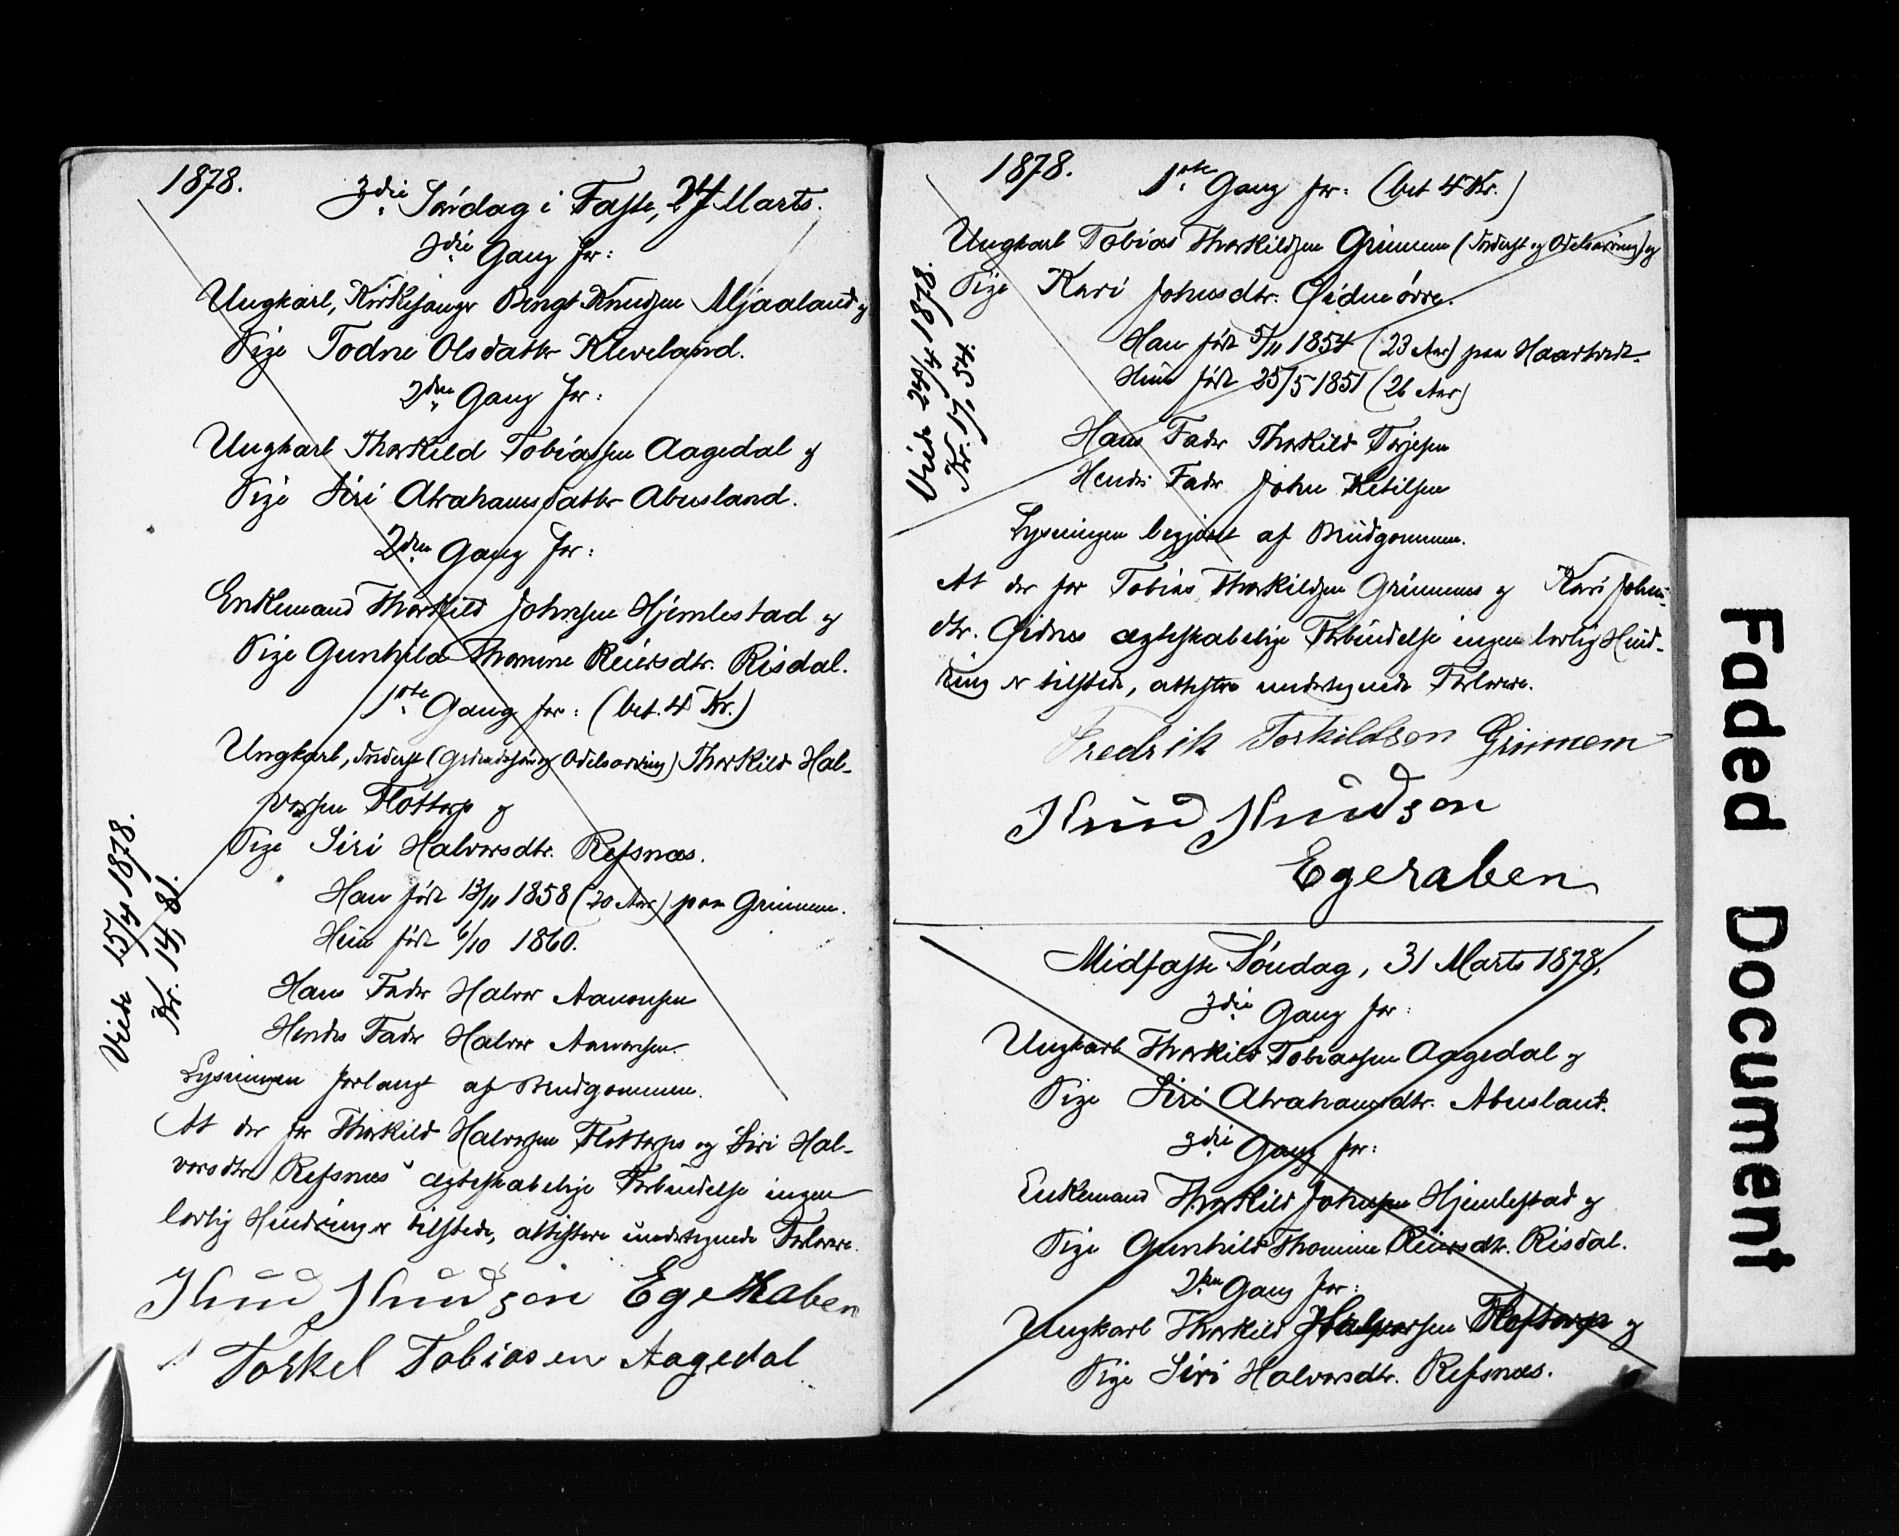 1878.
3die Søndag i Faste, 24 Marts.
3die Gang for:
Ungkarl, Kirkesanger Bengt Knudsen Mjaaland og
Pige Todne Olsdatter Kleveland.
2den Gang for:
Ungkarl Thorkild Tobiassen Aagedal og
Pige Siri Abrahamsdatter Abusland.
2den Gang for:
Enkemand Thorkild Johnsen Hjemlestad og
Pige Gunhild Thomine Reiersdtr. Risdal.
1ste Gang for: (bet. 4 Kr.)
Ungkarl, Inderst ( Odelsarving) Thorkild Hal-
vorsen Flottorp og
Pige Siri Halvorsdtr. Refsnæs.
Han født 13/11 1858 (20 Aar) paa Grimmem.
Hun født 6/10 1860.
Hans Fader Halvor Aanonsen
Hendes Fader Halvor Aanonsen.
Lysningen forlangt af Brudgommen.
At der for Thorkild Halvorsen Flottorps og Siri Hal-
vorsdtr. Refsnæs' ægteskabelige Forbindelse ingen
lovlig Hindring er tilstede, attestere undertegnede Forlovere.
Knud Knudson Egeraben
Torkel Tobiasen Aagedal
Viede 15/4 1878.
Kr. 14, 81.
1878.
1ste Gang for: (bet 4 Kr.)
Ungkarl Tobias Thorkildsen Grimmem (Inderst og Odelsarving) og
Pige Kari Johnsdtr. Øidne
Han født 5/11 1854 (23 Aar) paa
Hun født 25/5 1851 (26 Aar)
Hans Fader Thorkild Terjesen
Hendes Fader John Ketilsen
Lysningen begjært af Brudgommen.
At der for Tobias Thorkildsen Grimmems og Kari Johns-
dtr. Øidnes ægteskabelige Forbindelse ingen lovlig Hind-
ring er tilstede, attestere undertegnede Forlovere.
Fredrik Torkildson Grimmem
Knud Knudson
Egeraben
Viede 24/4 1878.
Kr. 17, 54.
Midfaste Søndag, 31 Marts 1878.
3die Gang for:
Ungkarl Thorkild Tobiassen Aagedal og
Pige Siri Abrahamsdtr. Abusland.
3die Gang for:
Enkemand Thorkild Johnsen Hjemlestad og
Pige Gunhild Thomine Reiersdtr. Risdal.
2den Gang for:
Ungkarl Thorkild Halvorsen Flottorp og
Pige Siri Halvorsdtr. Refsnæs.
Faded Document